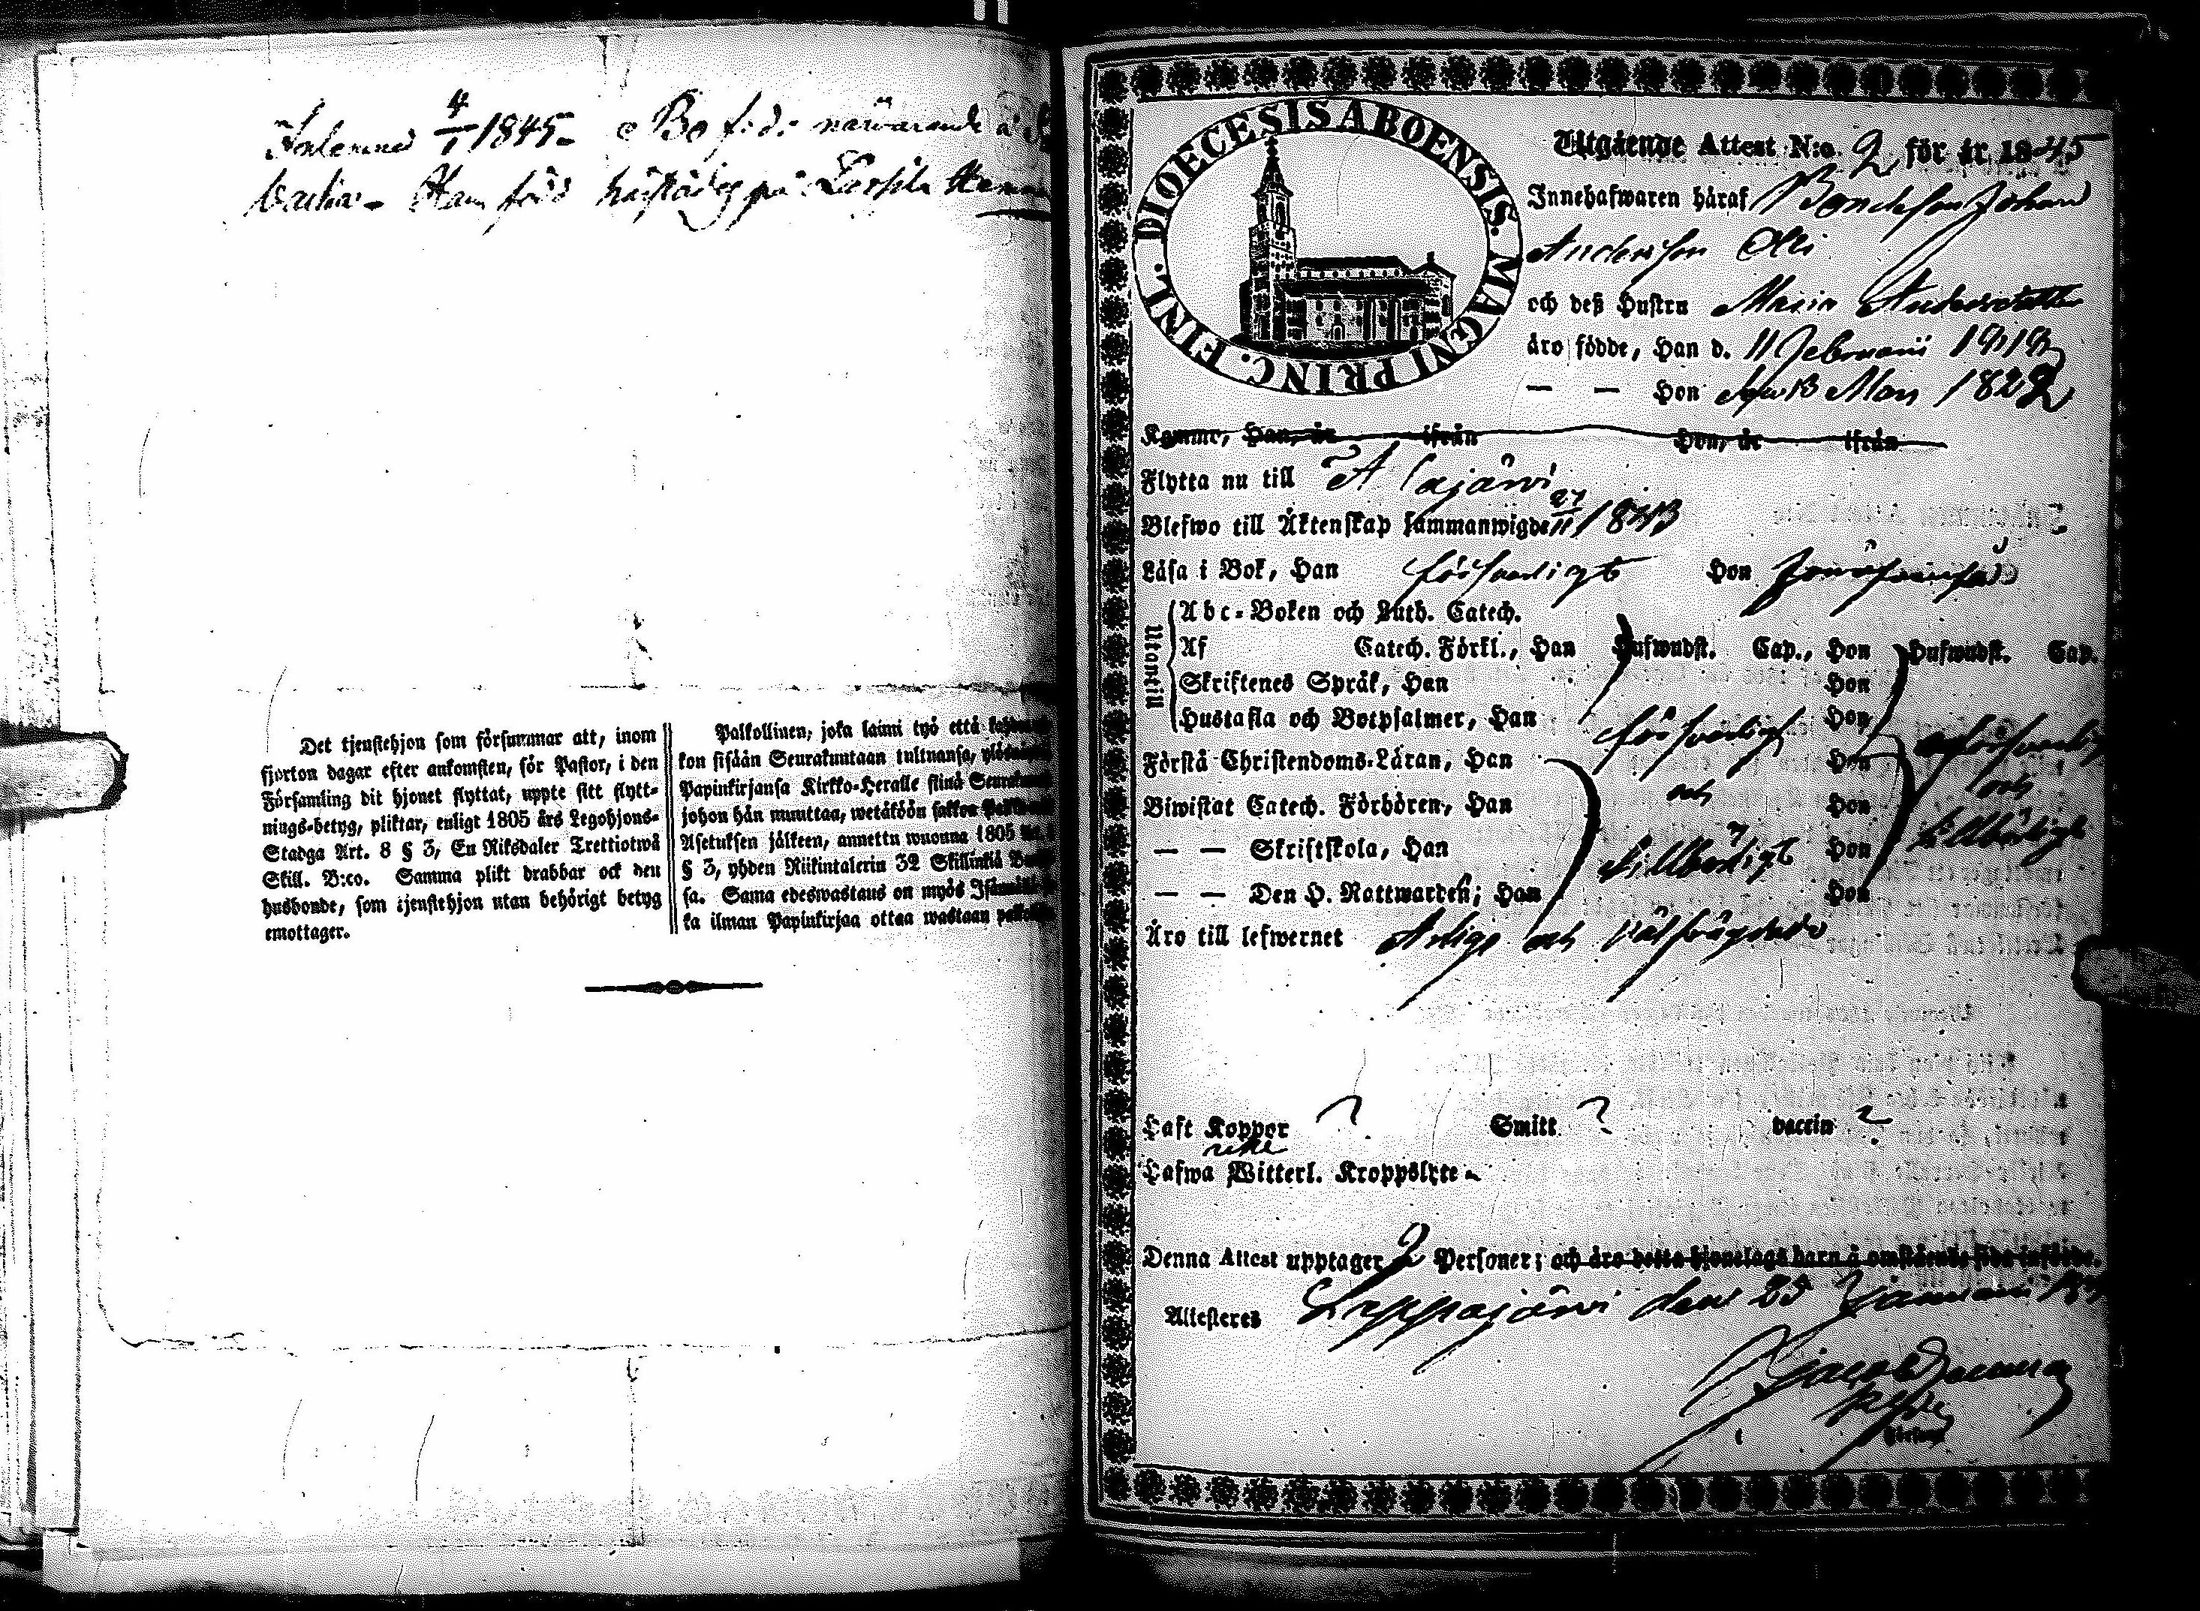 4/1 1845.
Det tjenstehjon som försummar att, inom
fjorton dagar efter ankomsten, för Pastor, i den
Församling dit hjonet flyttat, uppte sitt flytt-
nings-betyg, pliktar, enligt 1805 års Legohjons-
Stadga Art. 8 § 3, En Riksdaler Trettiotwå
Skill. B:co. Samma plikt drabbar ock den
husbonde, som tjenstehjon utan behörigt betyg
emottager.
Palkollinen, joka laimi lyö että
kon sisään Seurakuntaan tultuansa,
Papinkirjansa Kirkko-Herralle siinä
johon hän muuttaa, wetäköön sakkoa
Asetuksen jälkeen, annettu wuonna 1805
§ 3, yhden Riikintalerin 32 Skillinkiä
sa. Sama edeswastaus on myös
ka ilman Papinkirjaa ottaa wastaan
DIOECESIS ABOENSIS. MAGNI PRINC. FINL.
Utgående Attest N:o 2 för år 1845
Innehafwaren häraf Bondeson Johan
Andersson Olli
och deß Hustru Maria Andersdotter
äro födde, Han d. 11 Februarii 1818
— — Hon den 13 Mars 1822
Komme, Han, år ifrån Hon, år ifrån
Flytta nu till Alajärvi
Blefwo till Äktenskap sammanwigde 27/11 1843
Läsa i Bok, Han försvarligt Hon
Utantill
Abc-Boken och Luth. Catech.
Af Catech. Förkl., Han Hufwudst. Cap., Hon Hufwudst. Cap.
Skriftenes Språk, Han Hon
Hustafla och Botpsalmer, Han försvarligt Hon försvarligt
Förstå Christendoms-Läran, Han Hon
Biwistat Catech. Förhören, Han och Hon och
— — Skriftskola, Han tillbörligt Hon tillbörligt
— — Den H. Nattwarden; Han Hon
Äro till lefwernet Ärlige och välfrägdade
Haft Koppor ? Smitt ? vaccin ?
icke
Hafwa Witterl. Kroppslyte
Denna Attest upptager 2 Personer; och äro detta hjonelags barn å omstående sida införde.
Attesteres Lappajärvi den 25 Januarii